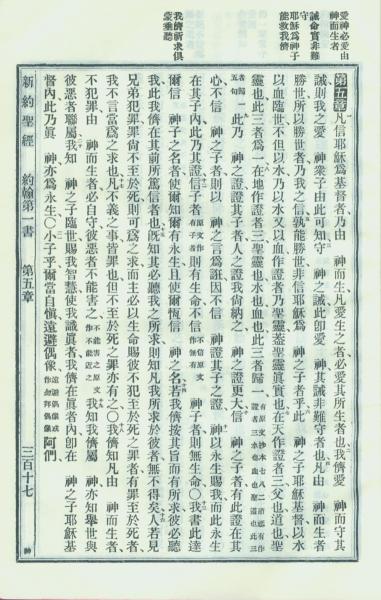 愛神必愛由
神而生者
誡命實非難
守
耶穌爲神子
能救我儕
我儕祈求俱
蒙垂聽
第五章 凡信耶穌爲基督者乃由 神而生凡愛生之者必愛其所生者也我儕愛 神而守其
誡則我之愛 神衆子由此可知守 神之誡此卽愛 神其誡非難守者也凡由 神而生者
勝世所以勝世者乃我之信孰能勝世非信耶穌爲 神之子者乎此 神之子耶穌基督以水
以血臨世不但以水乃以水又以血作證者乃聖靈蓋聖靈眞實也在天作證者三父也道也聖
靈也此三者爲一在地作證者三聖靈也水也血也此三者歸一 原文抄本七八二節或有作
者歸一五句 此乃 神之證證其子者人之證我尙納之 神之證更大信 神之子者有此證在其
心不信 神之子者則以 神之言爲誑因不信 神證其子之證 神以永生賜我而此永生
在其子內此乃其證信子者原文作有子者則有生命不信不信原文作無有 神子者則無生命○我書此達
爾信 神子之名者使爾知爾有永生且使爾恆信 神之名若我儕按其旨而有所求彼必聽
我此我儕在其前所篤信者也旣知其必聽我之所求則知凡我所求於彼者無不得矣人若見
兄弟犯罪罪尙不至於死則可爲之求而主必以生命賜彼不犯至於死之罪者有罪至於死者
我不言當爲之求也凡不義之事皆罪也但不至於死之罪亦有之○我儕知凡由 神而生者
不犯罪由 神而生者必自守彼惡者不能害之不能害之原文作不能近之我知我儕屬 神亦知舉世與
彼惡者聯屬我知 神之子臨世賜我智慧使我識眞者我儕在眞者內卽在 神之子耶穌基
督內此乃眞 神亦爲永生○小子乎爾當自愼遠避偶像遠避偶像或作勿拜偶像阿們
新約聖經 約翰第一書 第五章 三百十七